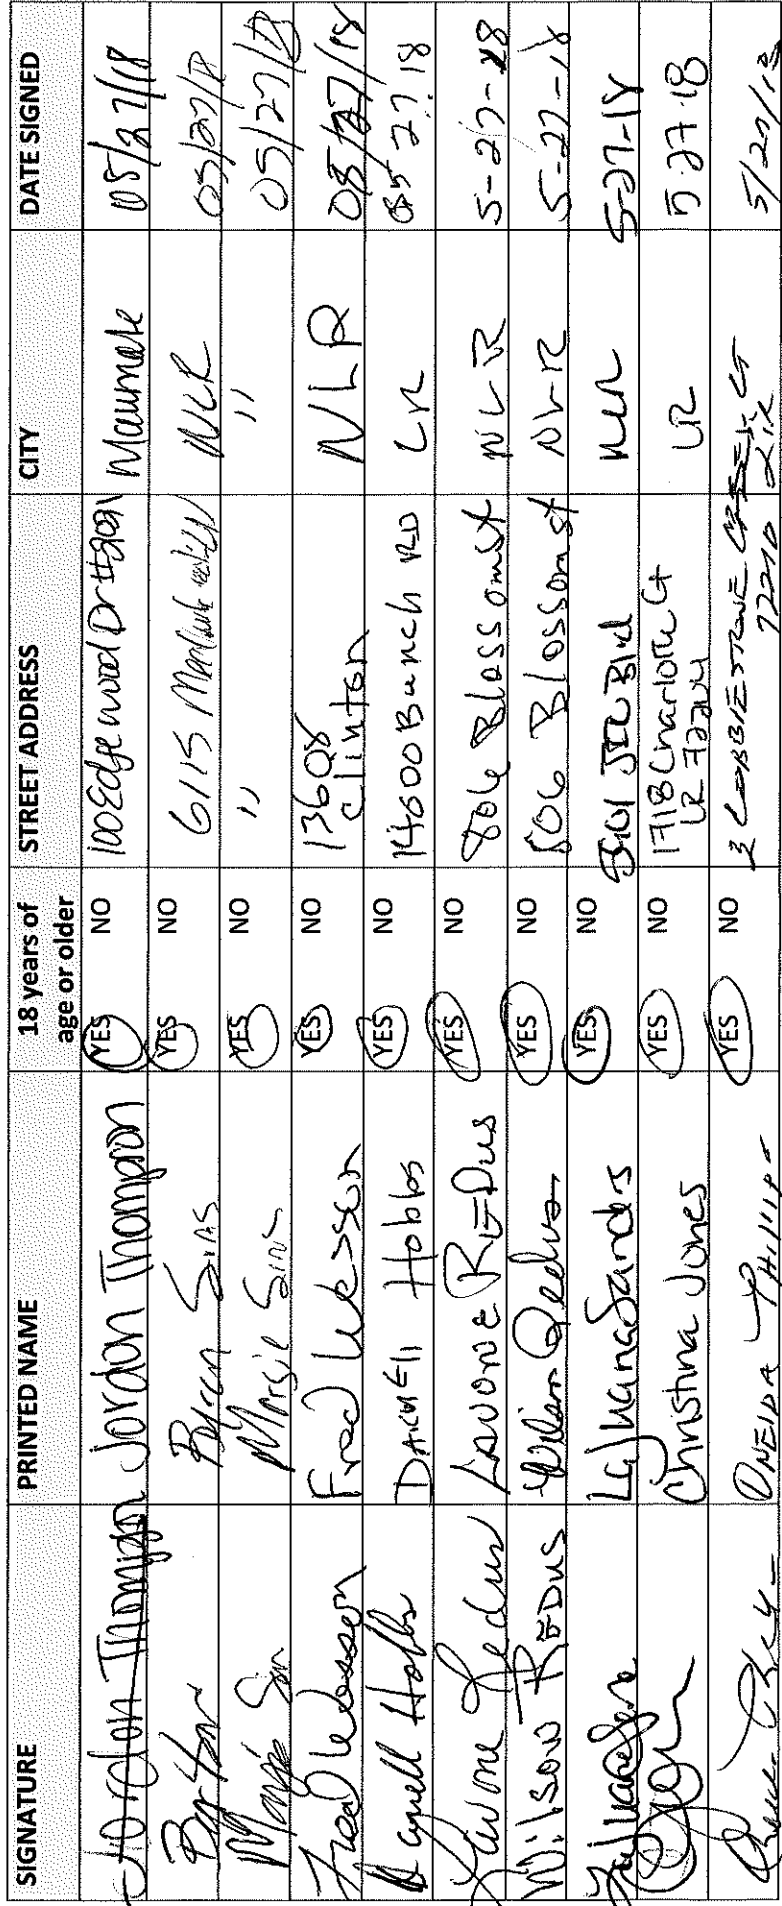 SIGNATURE PRINTED NAME 18 years of age or older STREET ADDRESS CITY DATE SIGNED
Jordon Thompson Jordon Thompson YES NO 100 Edgewood Dr Maumelle 05/27/18
YES NO 6115 NLR 05/27/
Margie YES NO " " 05/27/
Fred Wesson Fred Wesson YES NO 13608 Clinton NLR 08/27/18
Darnell Hobbs YES NO 14600 Bunch RD LR 05 27.18
Lavone Redus Lavone REDus YES NO 806 Blossom st NLR 5-27-18
Wilson REDUS Redus YES NO 806 Blossom st NLR 5-27-18
LaJuana Sanders YES NO Blvd NLR 5-27-18
Christina Jones YES NO 1718 Charlotte Ct LR 5.27.18
LR 72204
ONEIDA YES NO 3 COBBLESTONE CT 5/27/18
72210 LR